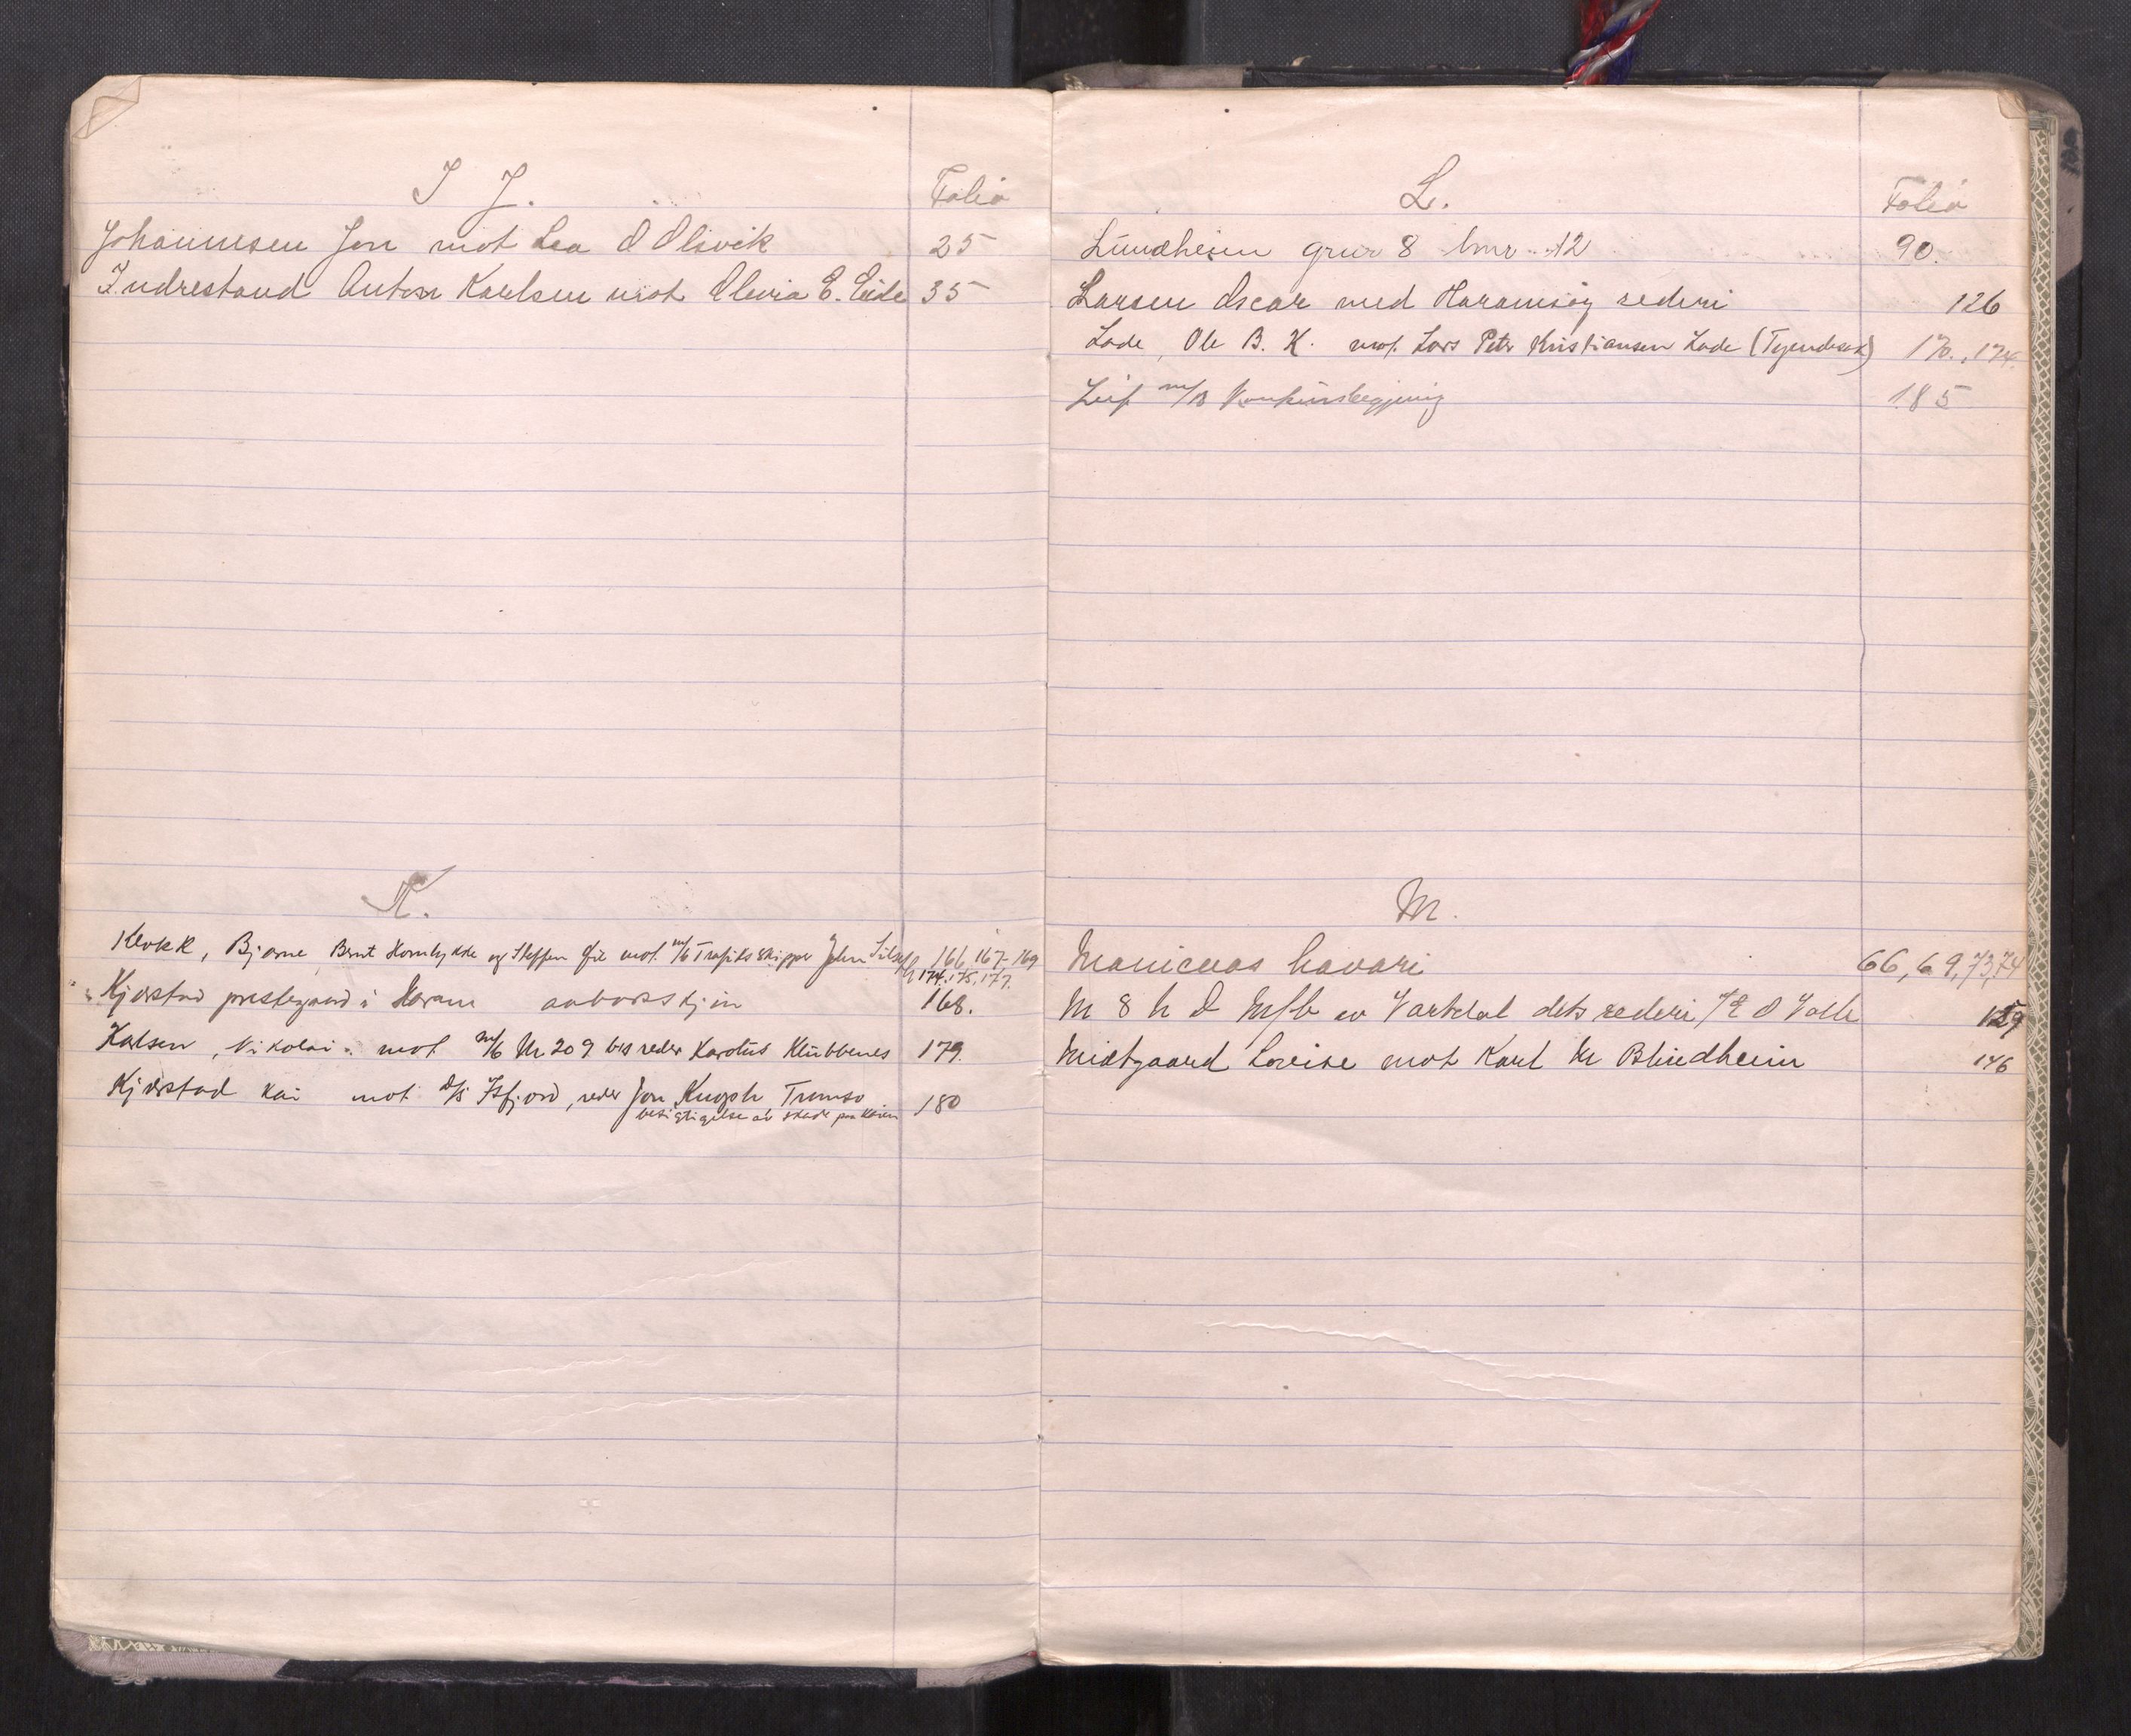 I J.
Folio
Johannesen Jon mot Lea O Olsvik 25
Indrestand Anton Karlsen mot Eluria E. Eide 35
K.
Klokk, Bjarne, Bernt Hornlykke og Steffen mot m/b Trafiks skipper John 166, 167-169
174, 175, 177.
Kjerstad prestegaard i Haram aabotsskjøn 168.
Kalsen, Nikolai mot m/b Nr 209 reder Karolus Klubbenes 179.
Kjerstad kai mot d/s Isfjord, reder Jon Kugph Tromsø 180
besigtigelse av skade paa kaien
L.
Folio
Lundheim gnr 8 bnr 12 90.
Larsen Oscar med Haramsøy rederi 126
Lade, Ole B. K. mot. Lars Peter Kristiansen Lade 170., 174.
Leif m/b Konkursbegjæring 185
M.
Manicuas havari 66, 69, 73, 74
M 8 h D M/b av Vartdal dets rederi O Valle
Midtgaard Lovise mot Karl M Blindheim 146